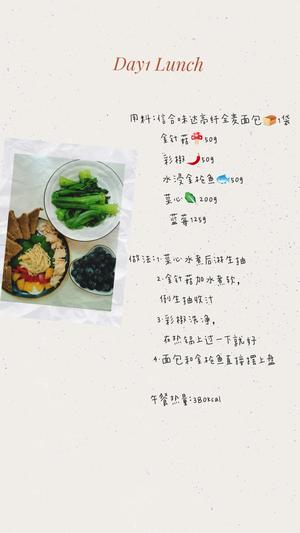 Day1 Lunch
用料:信合味达高纤全麦面包🍞1袋
金针菇🍄50g
彩椒🌶50g
水浸金枪鱼🐟50g
菜心🥬200g
蓝莓125g
做法:1.菜心水煮后淋生抽
2.金针菇加水煮软,
倒生抽收汁
3.彩椒洗净,
在热锅上过一下就好
4.面包和金枪鱼直接摆上盘
午餐热量:380kcal